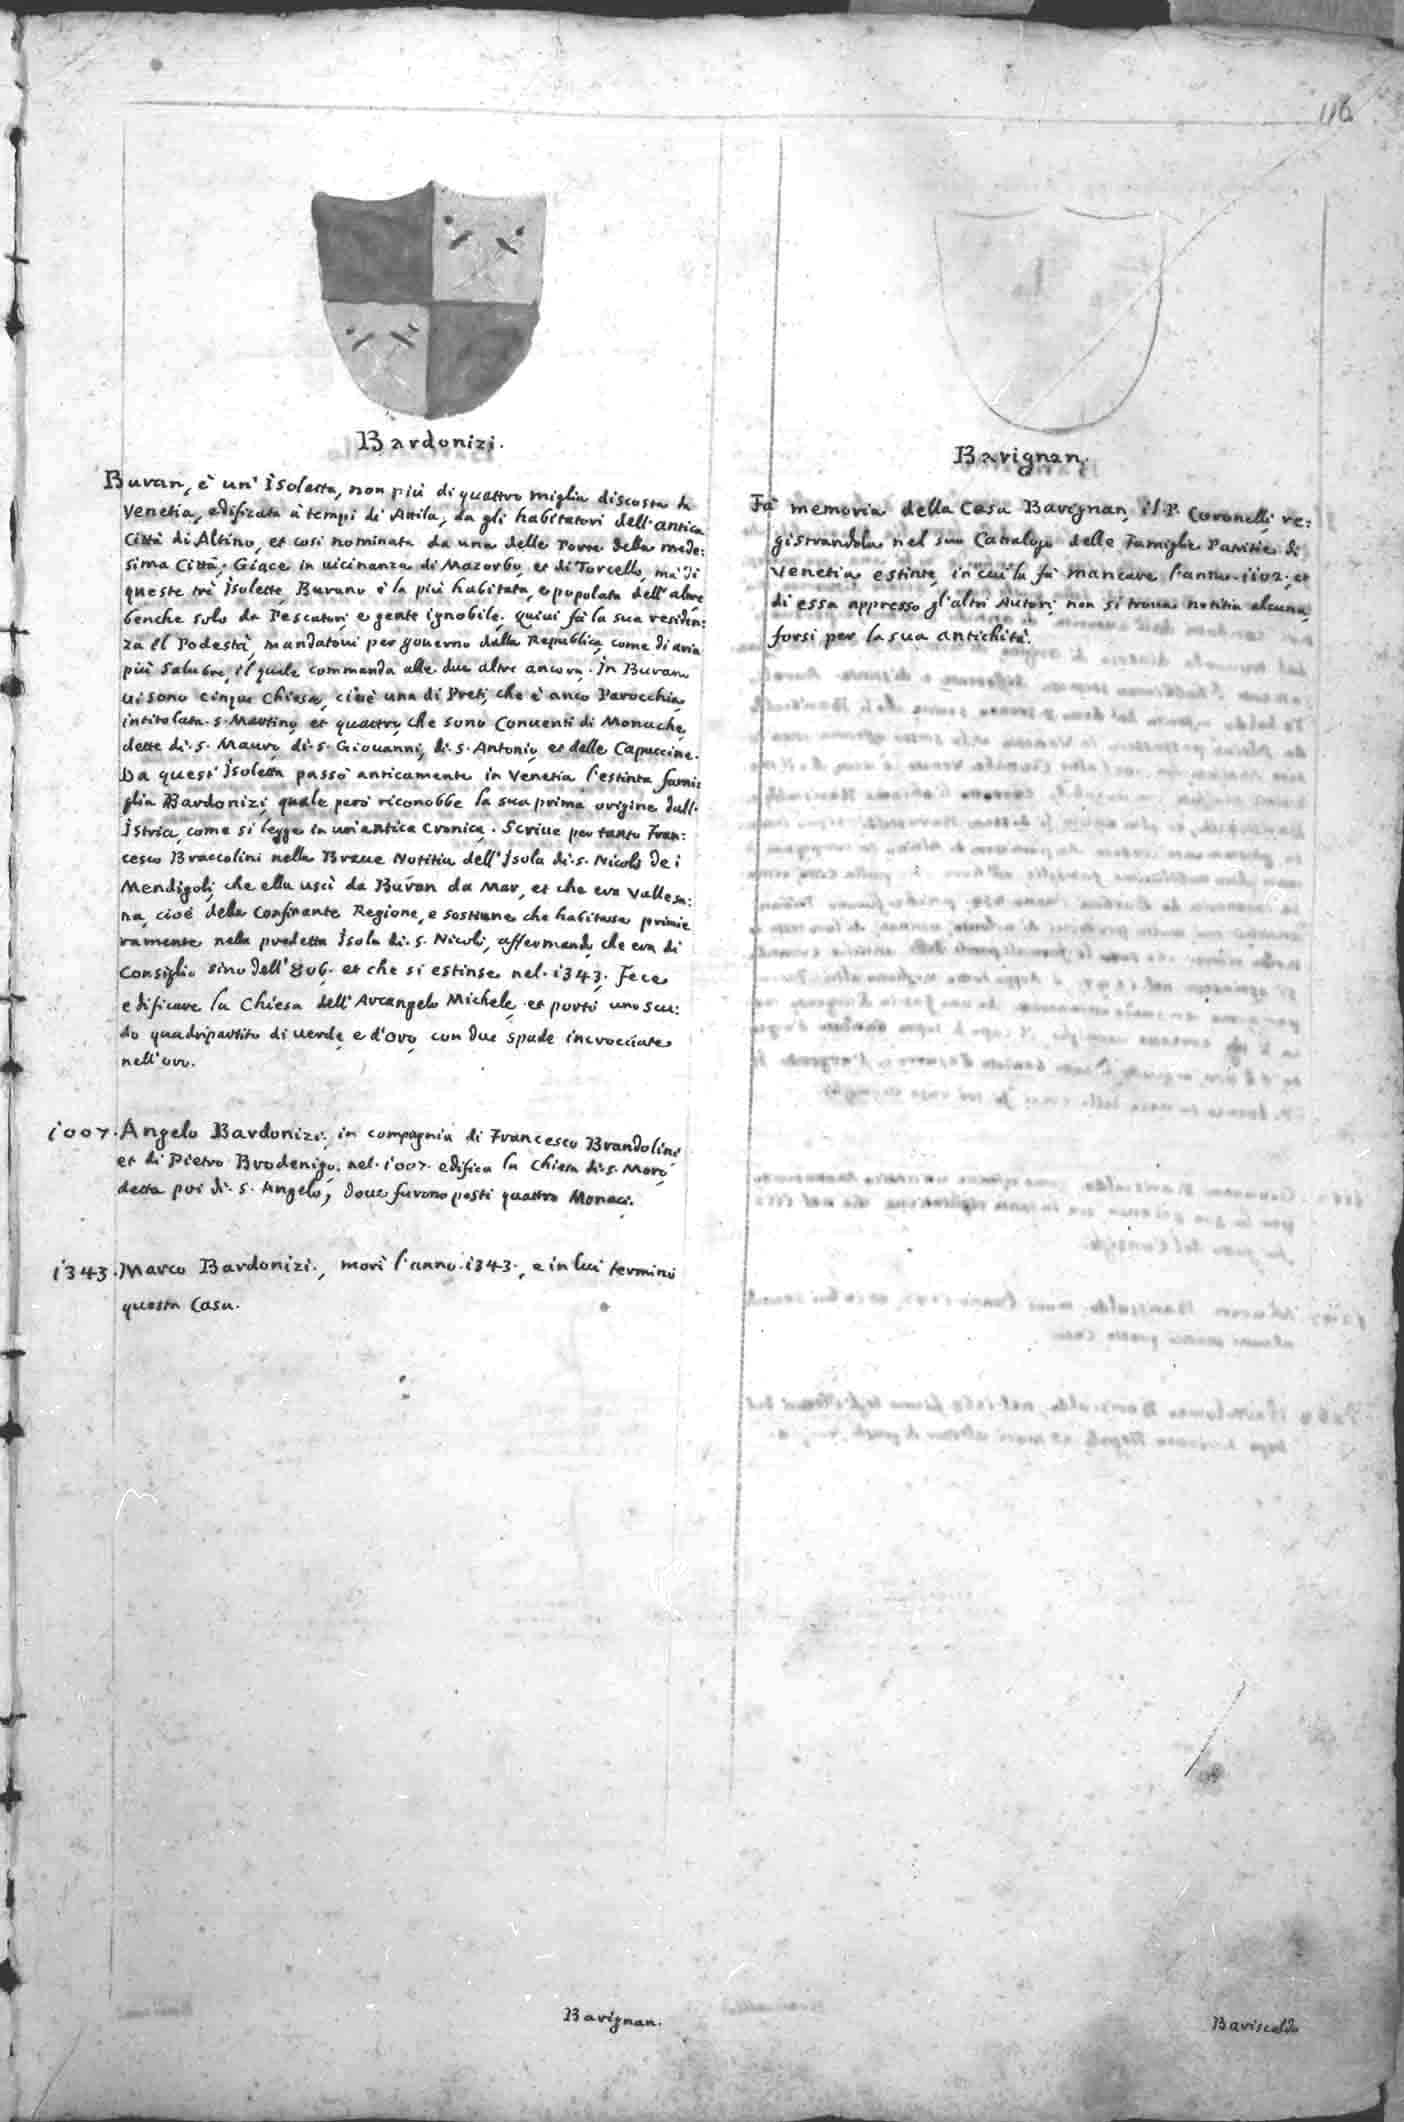 116
Bardonizi.
Buran, è un' Isoletta, non più di quattro miglia discosta da
Venetia, edificata a tempi di Attila, da gli habitatori dell'antica
Città di Altino, et così nominata da una delle Porte della mede:
sima Città. Giace in uicinanza di Mazorbo, et di Torcello, mà di
queste trè Isolette, Burano è la più habitata, e popolata dell'altre
benche solo da Pescatori, e gente ignobile. Quiui fà la sua residen:
za il Podestà, mandatoui per gouerno dalla Republica, come di aria
più salubre, il quale commanda alle due altre ancora. In Buran
ui sono cinque Chiese, cioè una di Preti, che è anco Parocchia,
intitolata S. Martino, et quattro, che sono Conuenti di Monache,
dette di S. Mauro, di S. Giouanni, di S. Antonio, et delle Capuccine.
Da quest' Isoletta passò anticamente in Venetia l'estinta fami:
glia Bardonizi, quale però riconobbe la sua prima origine dall'
Istria, come si legge in un'antica Cronica. Scriue per tanto Fran:
cesco Braccolini nella Breue Notitia dell'Isola di S. Nicolò dei
Mendigoli, che ella uscì da Buran da Mar, et che era Vallesa:
na, cioè della Confinante Regione, e sostiene che habitasse primie
ramente nella predetta Isola di S. Nicolò, affermando, che era di
Consiglio sino dell'806. et che si estinse nel 1343. Fece
edificare la Chiesa dell'Arcangelo Michele, et portò uno scu:
do quadripartito di uerde, e d'oro, con due spade incrocciate
nell'oro.
1007. Angelo Bardonizi, in compagnia di Francesco Brandolini
et di Pietro Brodenigo, nel 1007. edifica la Chiesa di S. Morò
detta poi di S. Angelo, doue furono posti quattro Monaci.
1343. Marco Bardonizi, morì l'anno 1343., e in lui terminò
questa Casa.
Bavignan.
Fà memoria della Casa Bavignan, il P. Coronelli, re:
gistrandola nel suo Catalogo delle Famiglie Patritie di
Venetia estinte, in cui la fà mancare l'anno 1102. et
di essa appresso gl'altri Autori, non si troua notitia alcuna,
forsi per la sua antichità.
Bavignan.
Baviscaldo